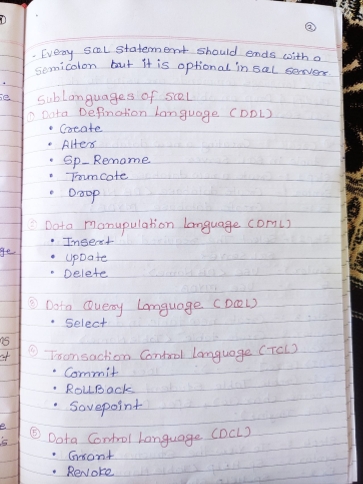 ②
- Every SQL Statement should ends with a
Semicolon but it is optional in SQL server
Sublanguages of SQL
① Data Defination Language (DDL)
• Create
• Alter
• Sp_Rename
• Truncate
• Drop
② Data Manupulation Language (DML)
• Insert
• UpDate
• Delete
③ Data Query Language (DQL)
• Select
④ Transaction Control Language (TCL)
• Commit
• RollBack
• Savepoint
⑤ Data Control Language (DCL)
• Grant
• Revoke